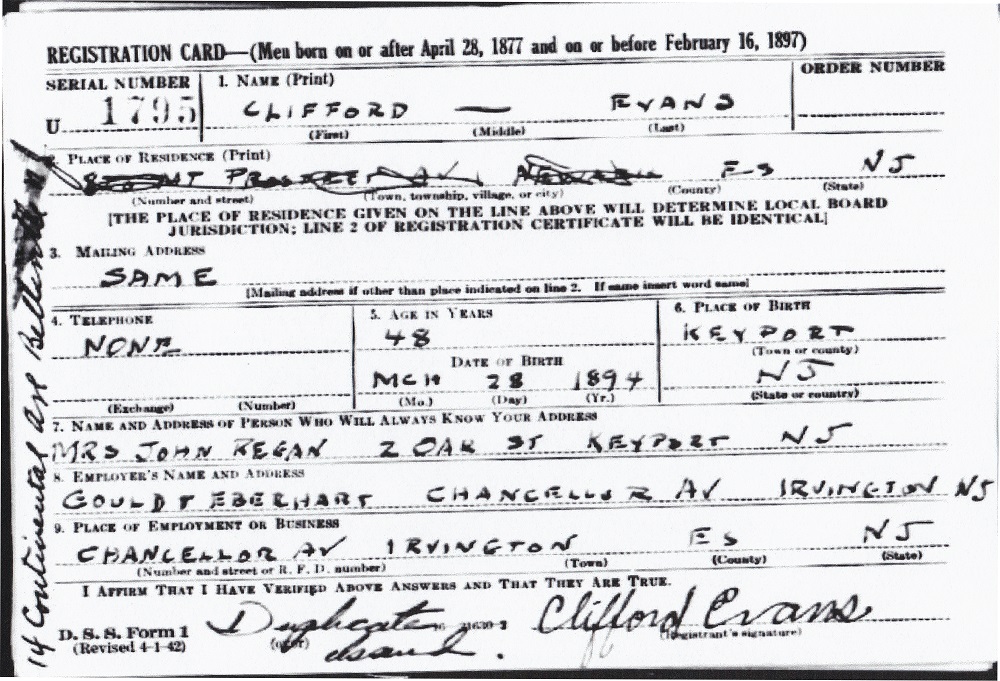 REGISTRATION CARD—(Men born on or after April 28, 1877 and on or before February 16, 1897)
SERIAL NUMBER 1. NAME (Print) ORDER NUMBER
U 1795 CLIFFORD — EVANS
(First) (Middle) (Last)
2. PLACE OF RESIDENCE (Print)
MT PROSPECT AV NEWARK ES NJ
(Number and street) (Town, township, village, or city) (County) (State)
[THE PLACE OF RESIDENCE GIVEN ON THE LINE ABOVE WILL DETERMINE LOCAL BOARD
JURISDICTION; LINE 2 OF REGISTRATION CERTIFICATE WILL BE IDENTICAL]
3. MAILING ADDRESS
SAME
[Mailing address if other than place indicated on line 2. If same insert word same]
4. TELEPHONE 5. AGE IN YEARS 6. PLACE OF BIRTH
NONE 48 KEYPORT
(Town or county)
DATE OF BIRTH
MCH 28 1894 NJ
(Exchange) (Number) (Mo.) (Day) (Yr.) (State or country)
7. NAME AND ADDRESS OF PERSON WHO WILL ALWAYS KNOW YOUR ADDRESS
MRS JOHN REGAN 2 OAK ST KEYPORT NJ
8. EMPLOYER'S NAME AND ADDRESS
GOULD & EBERHART CHANCELLOR AV IRVINGTON NJ
9. PLACE OF EMPLOYMENT OR BUSINESS
CHANCELLOR AV IRVINGTON ES NJ
(Number and street or R. F. D. number) (Town) (County) (State)
I AFFIRM THAT I HAVE VERIFIED ABOVE ANSWERS AND THAT THEY ARE TRUE.
D. S. S. Form 1 Duplicate Clifford Evans
(Revised 4-1-42) (over) issued. (Registrant's signature)
14 Continental Ave Belleville NJ